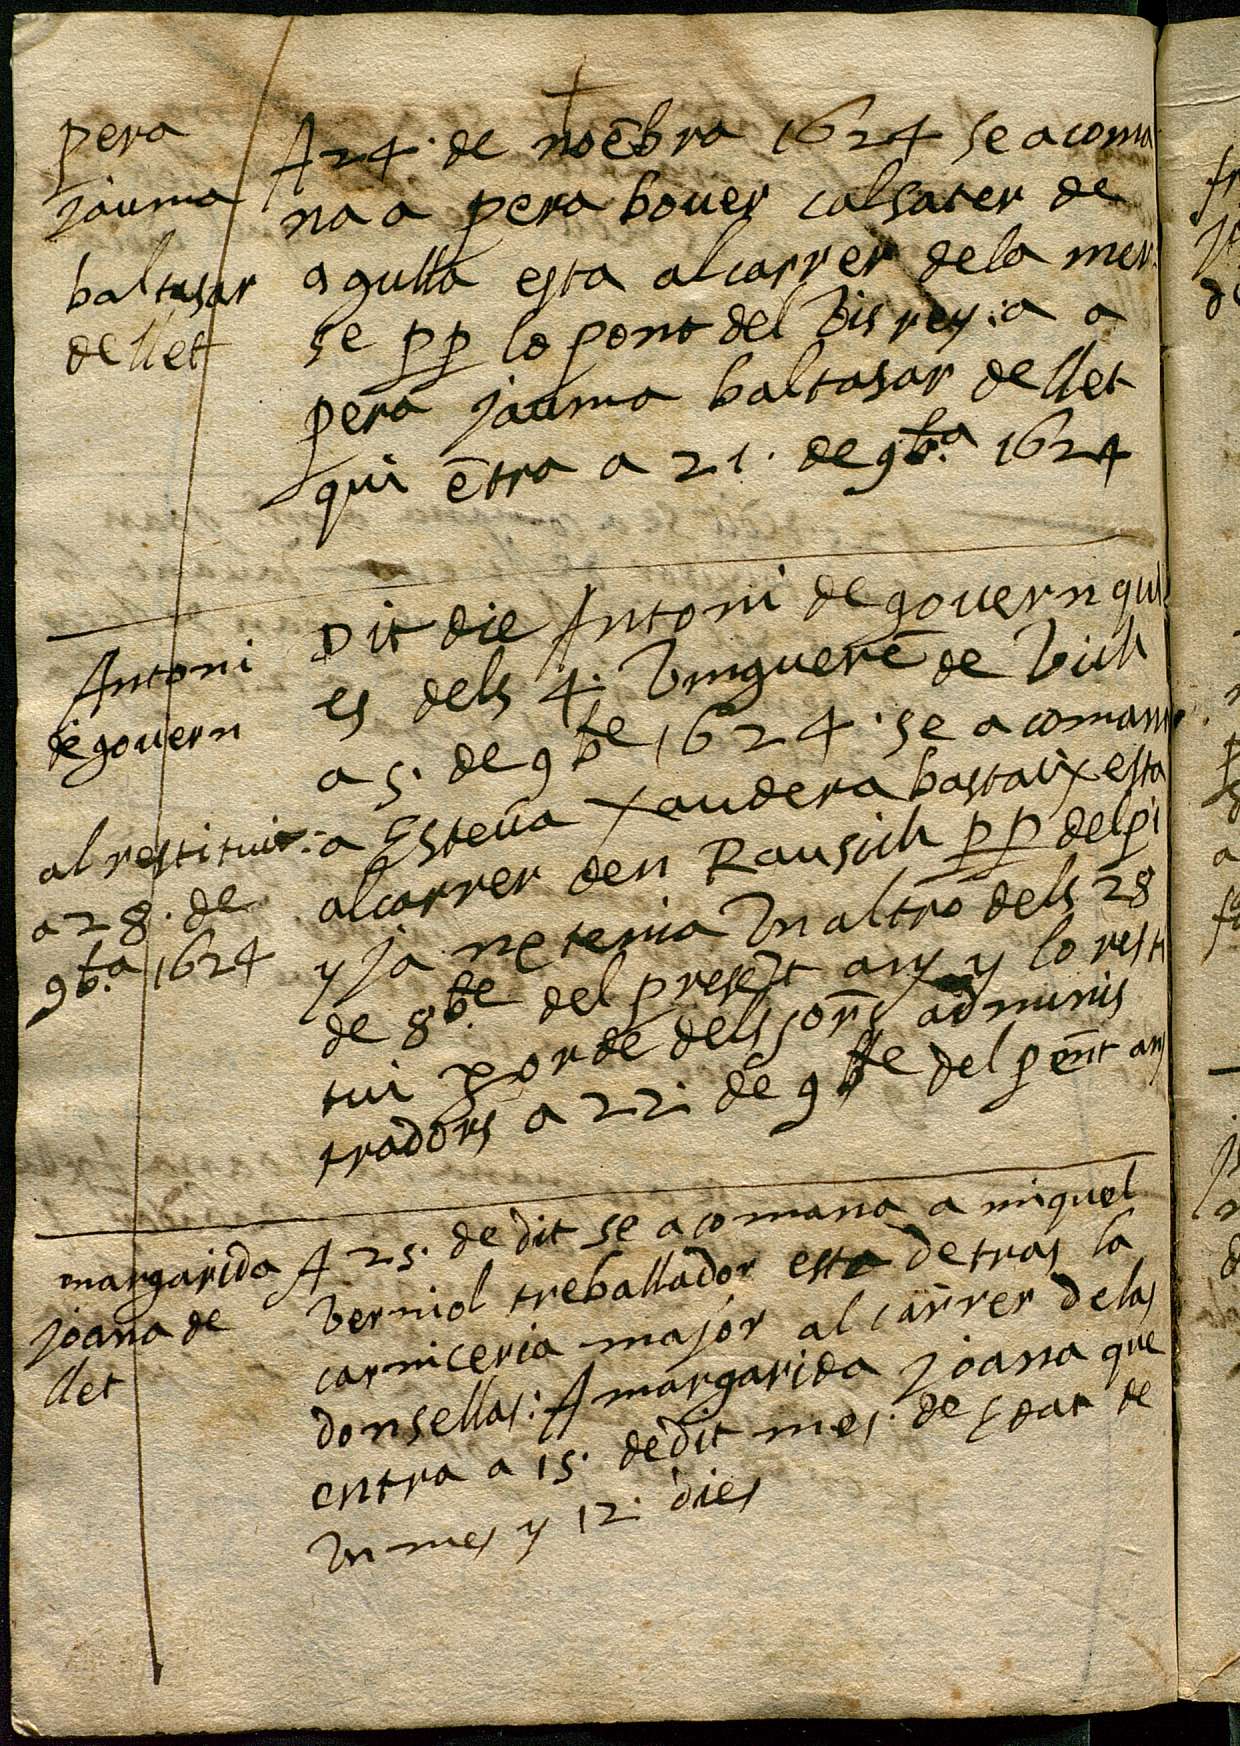 pera
jauma
baltasar
de llet
A 24. de noēbra 1624 se acoma
na a pera bouer calsater de
agulla esta al carrer de la mer
se pp lo pont del Visrey: a a
pera jauma baltasar de llet
qui ētra a 21. de 9b.ª 1624
Antoni
de gouern
al restituir:
a 28. de
9b.ª 1624
Dit die Antoni de gouern qui
es dels 4. Vinguerē de Vich
a 5. de 9bre 1624. se a comana
a Esteua Xaudera bastaix esta
al carrer den Rausich pp del pi
y ja ne tenia Vn altro dels 28
de 8bre del preset any y lo resti
tui p orde dels sors adminis
tradors a 22. de 9bre del pēnt any
margarida
joana de
llet
A 25. de dit se acomana a miquel
Verniol treballador esta detras la
carniceria major al carrer de las
donsellas: A margarida joana que
entra a 15. de dit mes. de edat de
Vn mes y 12. dies